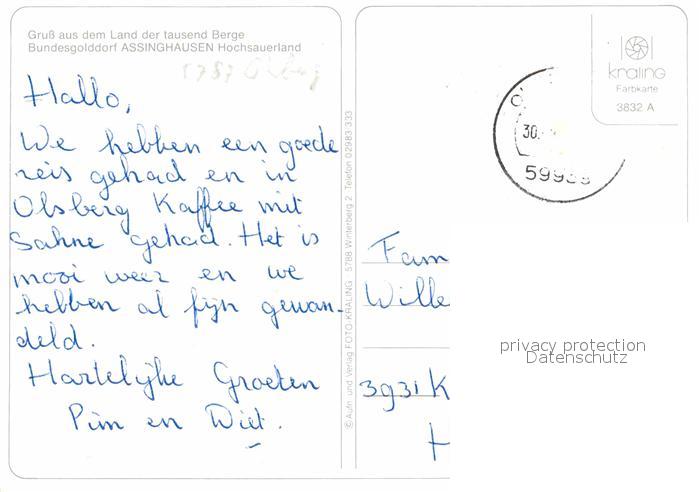 Gruß aus dem Land der tausend Berge
Bundesgolddorf ASSINGHAUSEN Hochsauerland
5787 Olsberg
Hallo,
We hebben een goede
reis gehad en in
Olsberg Kaffee mit
Sahne gehad. Het is
mooi weer en we
hebben al fijn gewan-
deld.
Hartelijke Groeten
Pim en Diet.
© Auto und Verlag FOTO-KRALING 5788 Winterberg 2 Telefon 02983 333
kraling
Farbkarte
3832 A
30.
Fam
Wille
3931 K
H
privacy protection
Datenschutz